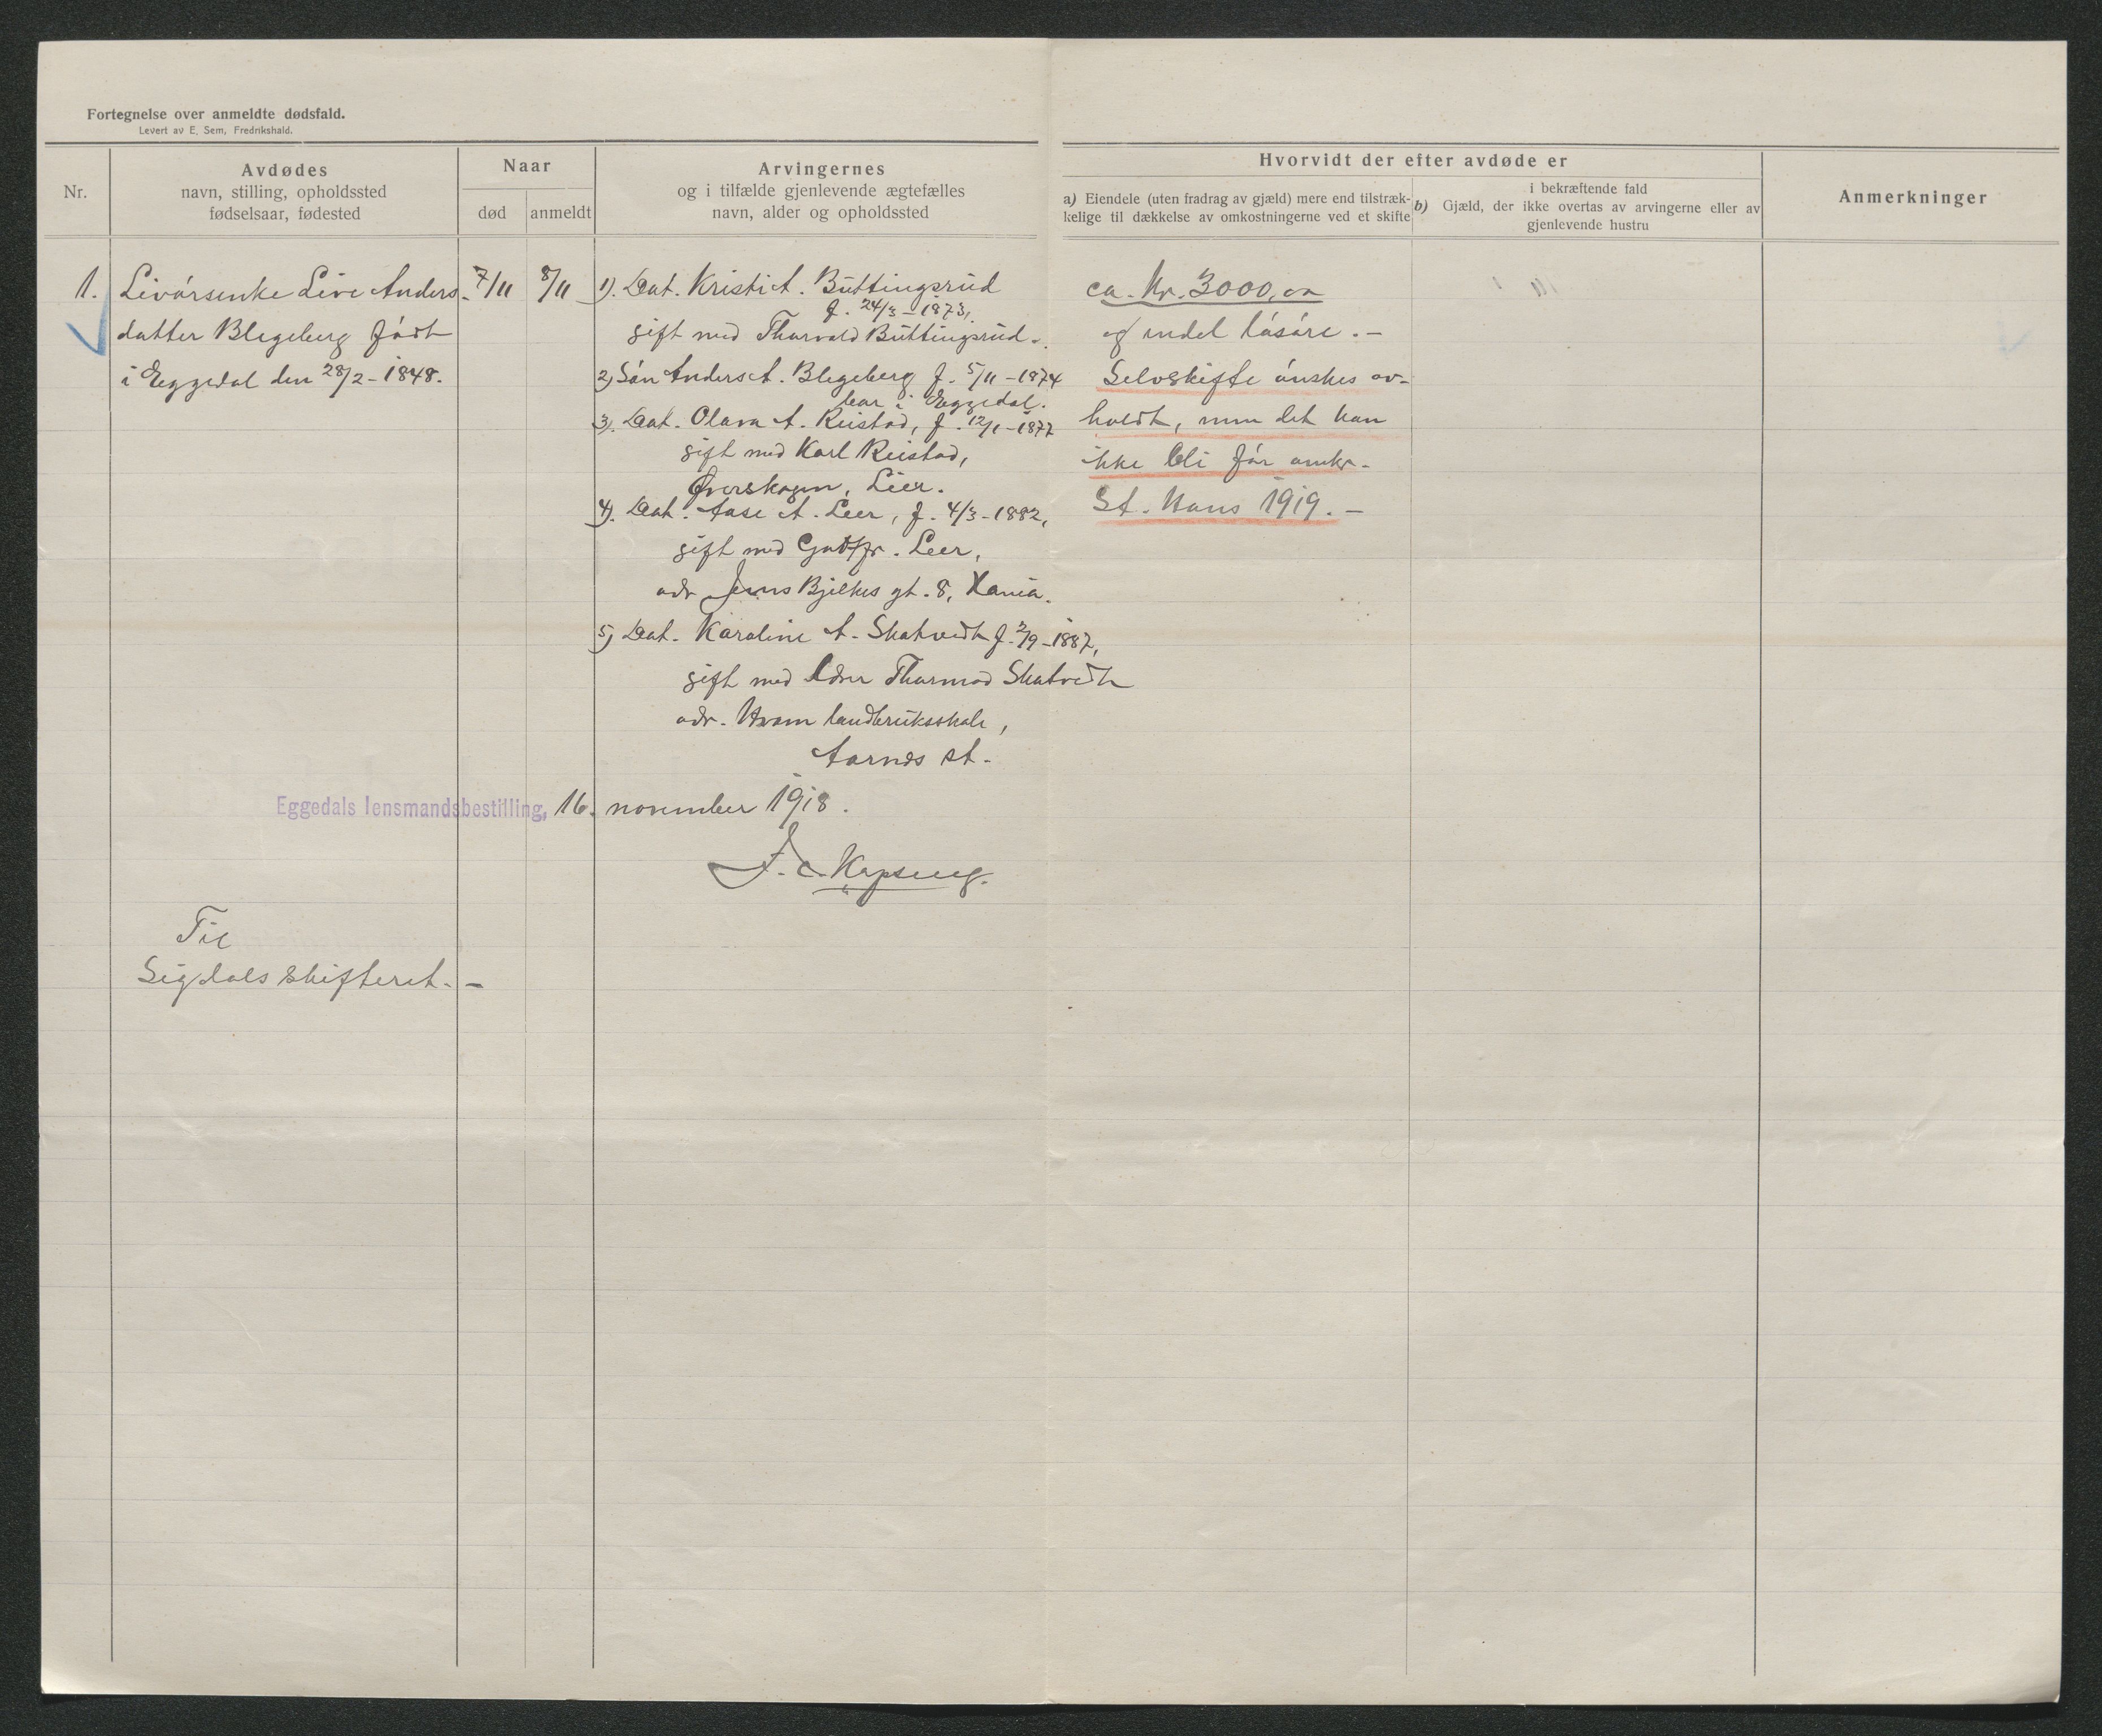 Fortegnelse over anmeldte dødsfald.
Levert av E. Sem, Fredrikshald.
Nr.
Avdødes
navn, stilling, opholdssted
fødselsaar, fødested
Naar
død
anmeldt
Arvingernes
og i tilfælde gjenlevende ægtefælles
navn, alder og opholdssted
Hvorvidt der efter avdøde er
a) Eiendele (uten fradrag av gjæld) mere end tilstræk-
kelige til dækkelse av omkostningerne ved et skifte
i bekræftende fald
b) Gjæld, der ikke overtas av arvingerne eller av
gjenlevende hustru
Anmerkninger
1.
Livørsenke Live Anders-
datter Blegeberg født
i Eggedal den 28/2-1848.
7/11
8/11
1). Dat. Kristi A. Buttingsrud
f. 24/3-1873,
gift med Thorvald Buttingsrud.
2) Søn Anders A. Blegeberg f. 5/11-1874
bor i Eggedal.
3). Dat. Olava A. Reistad, f. 12/1-1877
gift med Karl Reistad,
Øverskogen, Lier.
4). Dat. Aase A. Leer, f. 4/3-1882,
gift med Gudtfr. Leer,
adr Jens Bjelkes gt. 8, Kania.
5) Dat. Karoline A. Skatvedt f. 2/9-1887,
gift med Thormod Skatvedt
adr. Hvam landbruksskole,
Aarnes st.
ca. Kr. 3000,00
og endel løsøre. -
Selvskifte ønskes av-
holdt, men det kan
ikke bli før omkr.
St. Hans 1919. -
Eggedals lensmandsbestilling, 16. november 1918.
F. C. Kopseng.
Til
Sigdals skifteret. -